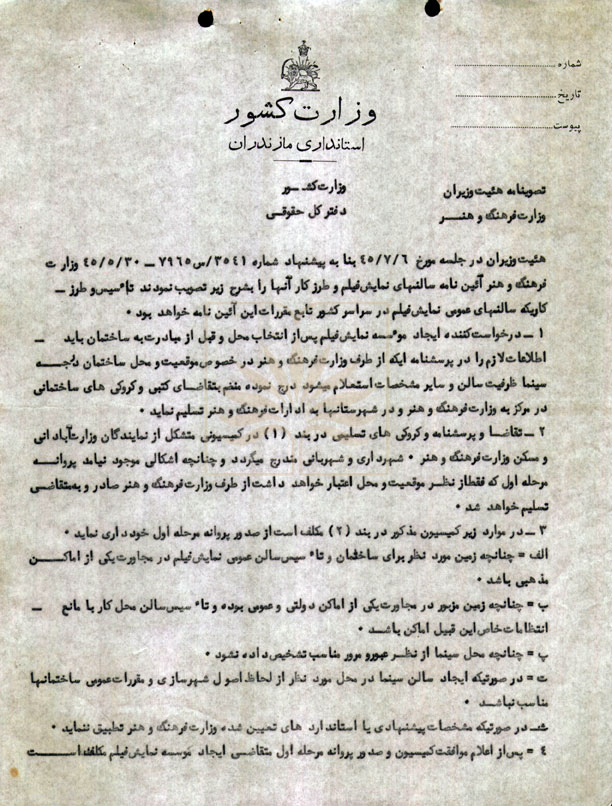 شماره
تاریخ
پیوست
وزارت کشور
استانداری مازندران
تصویبنامه هئیت وزیران
وزارت کشـــور
وزارت فرهنگ و هنـــر
دفتر کل حقوقی
هئیت وزیران در جلسه مورخ ۴۵/۷/۶ بنا به پیشنهاد شماره ۳۵۴۱/س۷۹۶۵ ــ ۴۵/۵/۳۰ وزارت
فرهنگ و هنر آئین نامه سالنهای نمایش فیلم و طرز کار آنها را بشرح زیر تصویب نمودند تاءسیس و طرز ــ
کاریکه سالنهای عمومی نمایش فیلم در سراسر کشور تابع مقررات این آئین نامه خواهد بود .
۱ ــ درخواست کننده ایجاد موءسسه نمایش فیلم پس از انتخاب محل و قبل از مبادرت به ساختمان باید ــ
اطلاعات لازم را در پرسشنامه ایکه از طرف وزارت فرهنگ و هنر در خصوص موقعیت و محل ساختمان درجـــه
سینما ظرفیت سالن و سایر مشخصات استعلام میشود درج نموده منضم بتقاضای کتبی و کروکی های ساختمانی
در مرکز به وزارت فرهنگ و هنر و در شهرستانها به ادارات فرهنگ و هنر تسلیم نماید .
۲ ــ تقاضا و پرسشنامه و کروکی های تسلیمی در بند (۱) در کمیسیونی متشکل از نمایندگان وزارت آبادانی
و مسکن وزارت فرهنگ و هنر . شهرداری و شهربانی مندرج میگردد و چنانچه اشکالی موجود نیامد پروانـــه
مرحله اول که فقط از نظر موقعیت و محل اعتبار خواهد داشت از طرف وزارت فرهنگ و هنر صادر و به متقاضی
تسلیم خواهد شد .
۳ ــ در موارد زیر کمیسیون مذکور در بند (۲) مکلف است از صدور پروانه مرحله اول خودداری نماید .
الف = چنانچه زمین مورد نظر برای ساختمان و تاءسیس سالن عمومی نمایش فیلم در مجاورت یکی از اماکـــن
مذهبی باشد .
ب = چنانچه زمین مزبور در مجاورت یکی از اماکن دولتی و عمومی بوده و تاءسیس سالن محل کار یا مانع ــ
انتظامات خاص این قبیل اماکن باشـــد .
پ = چنانچه محل سینما از نظـر عبور و مرور مناسب تشخیص داده نشود .
ت = در صورتیکه ایجاد سالن سینما در محل مورد نظر از لحاظ اصول شهرسازی و مقررات عمومی ساختمانها
مناسب نباشـــد .
ث ــ در صورتیکه مشخصات پیشنهادی با استاندارد های تعیین شده وزارت فرهنگ و هنر تطبیق ننماید .
۴ = پس از اعلام موافقت کمیسیون و صدور پروانه مرحله اول متقاضی ایجاد موءسسه نمایش فیلم مکلف است